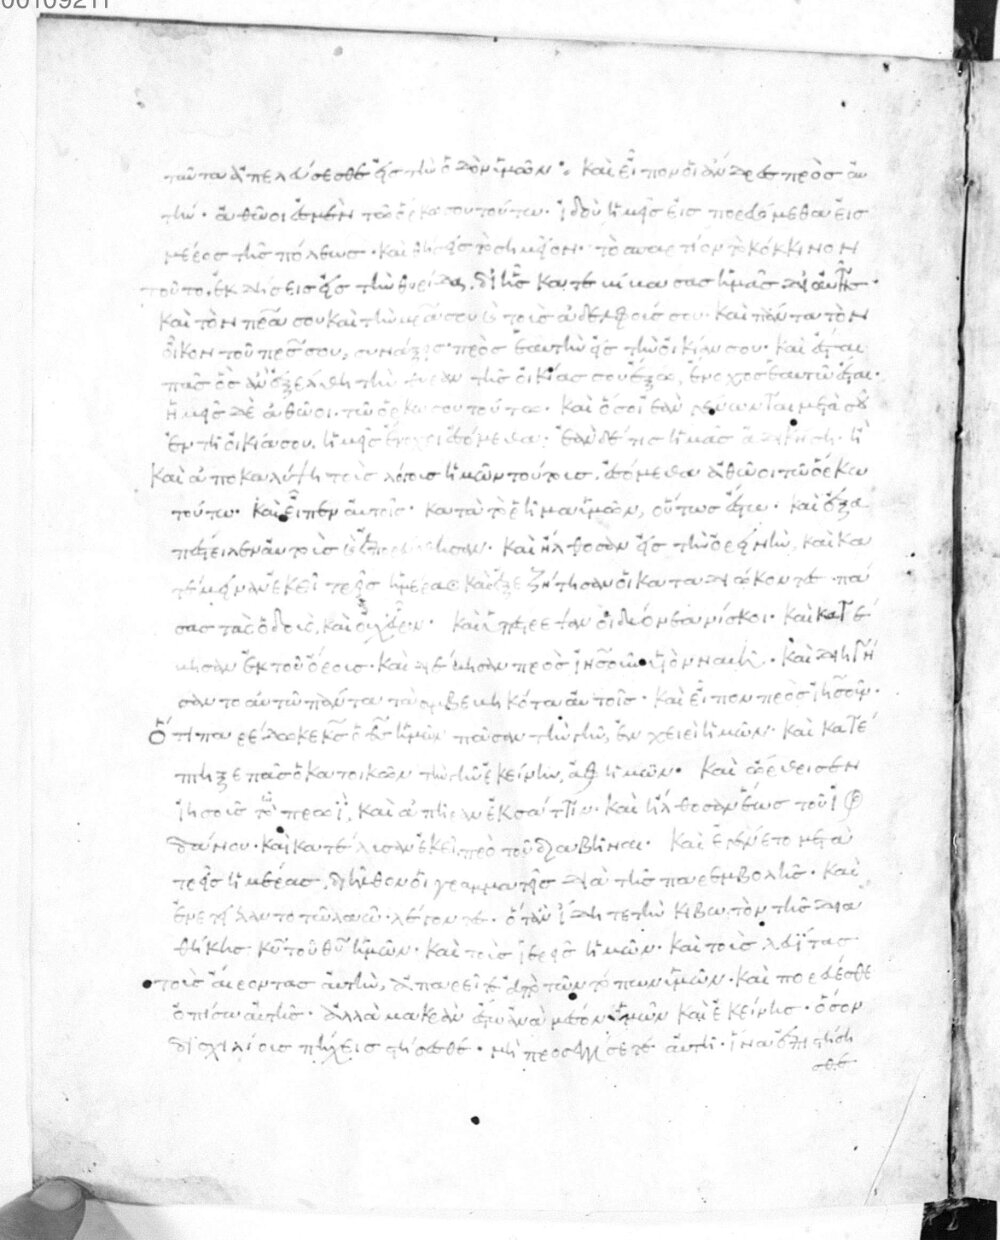 ταῦτα ἀπελεύσεσθε εἰς τὴν ὁδὸν ὑμῶν· καὶ εἶπον οἱ ἄνδρες πρὸς αὐ
τὴν· ἀθῶοι ἐσμὲν τῶ ὅρκω σου τούτω· ἰδοὺ ἡμεῖς εἰσπορευόμεθα εἰς
μέρος τῆς πόλεως· καὶ θήσεις τὸ σημεῖον· τὸ σπαρτίον τὸ κόκκινον
τοῦτο, ἐκδήσεις εἰς τὴν θυρίδα, δι' ἧς κατεβίβασας ἡμᾶς δι' αὐτῆς·
καὶ τὸν πρα σου καὶ τὴν μρα σου καὶ τοὺς ἀδελφούς σου· καὶ πάντα τὸν
οἶκον τοῦ προς σου, συνάξεις πρὸς ἑαυτὴν εἰς τὴν οἰκίαν σου· καὶ ἔσται
πᾶς ὃς ἂν ἐξέλθη τὴν θύραν τῆς οἰκίας σου ἔξω, ἔνοχος ἑαυτῶ ἔσται·
ἡμεῖς δὲ ἀθῶοι τῶ ὅρκω σου τούτω· καὶ ὅσοι ἐὰν γένωνται μετὰ σοῦ
ἐν τῆ οἰκία σου, ἡμεῖς ἔνοχοι ἐσόμεθα· ἐὰν δέ τις ἡμᾶς ἀδικήση· ἢ
καὶ ἀποκαλύψη τοὺς λόγους ἡμῶν τούτους, ἐσόμεθα ἀθῶοι τῶ ὅρκω
τούτω· καὶ εἶπεν αὐτοῖς· κατὰ τὸ ῥῆμα ὑμῶν, οὕτως ἔστω· καὶ ἐξα
πέστειλεν αὐτοὺς καὶ ἐπορεύθησαν· καὶ ἤλθοσαν εἰς τὴν ὀρεινὴν, καὶ κα
τέμειναν ἐκεῖ τρεῖς ἡμέρας καὶ ἐξεζήτησαν οἱ καταδιώκοντες πά
σας τὰς ὁδοὺς, καὶ οὐχ εὗρον· καὶ ὑπέστρεψαν οἱ δύο νεανίσκοι· καὶ κατέ
βησαν ἐκ τοῦ ὄρους· καὶ διέβησαν πρὸς ἰησοῦν υἱὸν ναυῆ· καὶ διηγή
σαντο αὐτῶ πάντα τὰ συμβεβηκότα αὐτοῖς· καὶ εἶπον πρὸς ἰησοῦν·
ὅτι παρέδωκε κς ὁ θς ἡμῶν πᾶσαν τὴν γῆν, ἐν χειρὶ ἡμῶν· καὶ κατέ
πτηξε πᾶς ὁ κατοικῶν τὴν γῆν ἐκείνην, ἀφ' ἡμῶν· καὶ ὤρθρισεν
ἰησοῦς τὸ πρωῒ, καὶ ἀπῆραν ἐκ σαττὶν· καὶ ἤλθοσαν ἕως τοῦ ἰορ
δάνου· καὶ κατέλυσαν ἐκεῖ πρὸ τοῦ διαβῆναι· καὶ ἐγένετο μετὰ
τρεῖς ἡμέρας, διῆλθον οἱ γραμματεῖς διὰ τῆς παρεμβολῆς· καὶ
ἐνετείλαντο τῶ λαῶ λέγοντες· ὅταν ἴδητε τὴν κιβωτὸν τῆς δια
θήκης κυ τοῦ θυ ἡμῶν· καὶ τοὺς ἱερεῖς ἡμῶν· καὶ τοὺς λευίτας
τοὺς αἴροντας αὐτὴν, ἀπαρεῖτε ἀπὸ τῶν τόπων ὑμῶν· καὶ πορεύεσθε
ὀπίσω αὐτῆς· ἀλλὰ μακρὰν ἔστω ἀνὰ μέσον ὑμῶν καὶ ἐκείνης· ὅσον
δισχιλίους πήχεις στήσεσθε· μὴ προσεγγίσητε αὐτῆ· ἵν' ἐπίστη
σθε